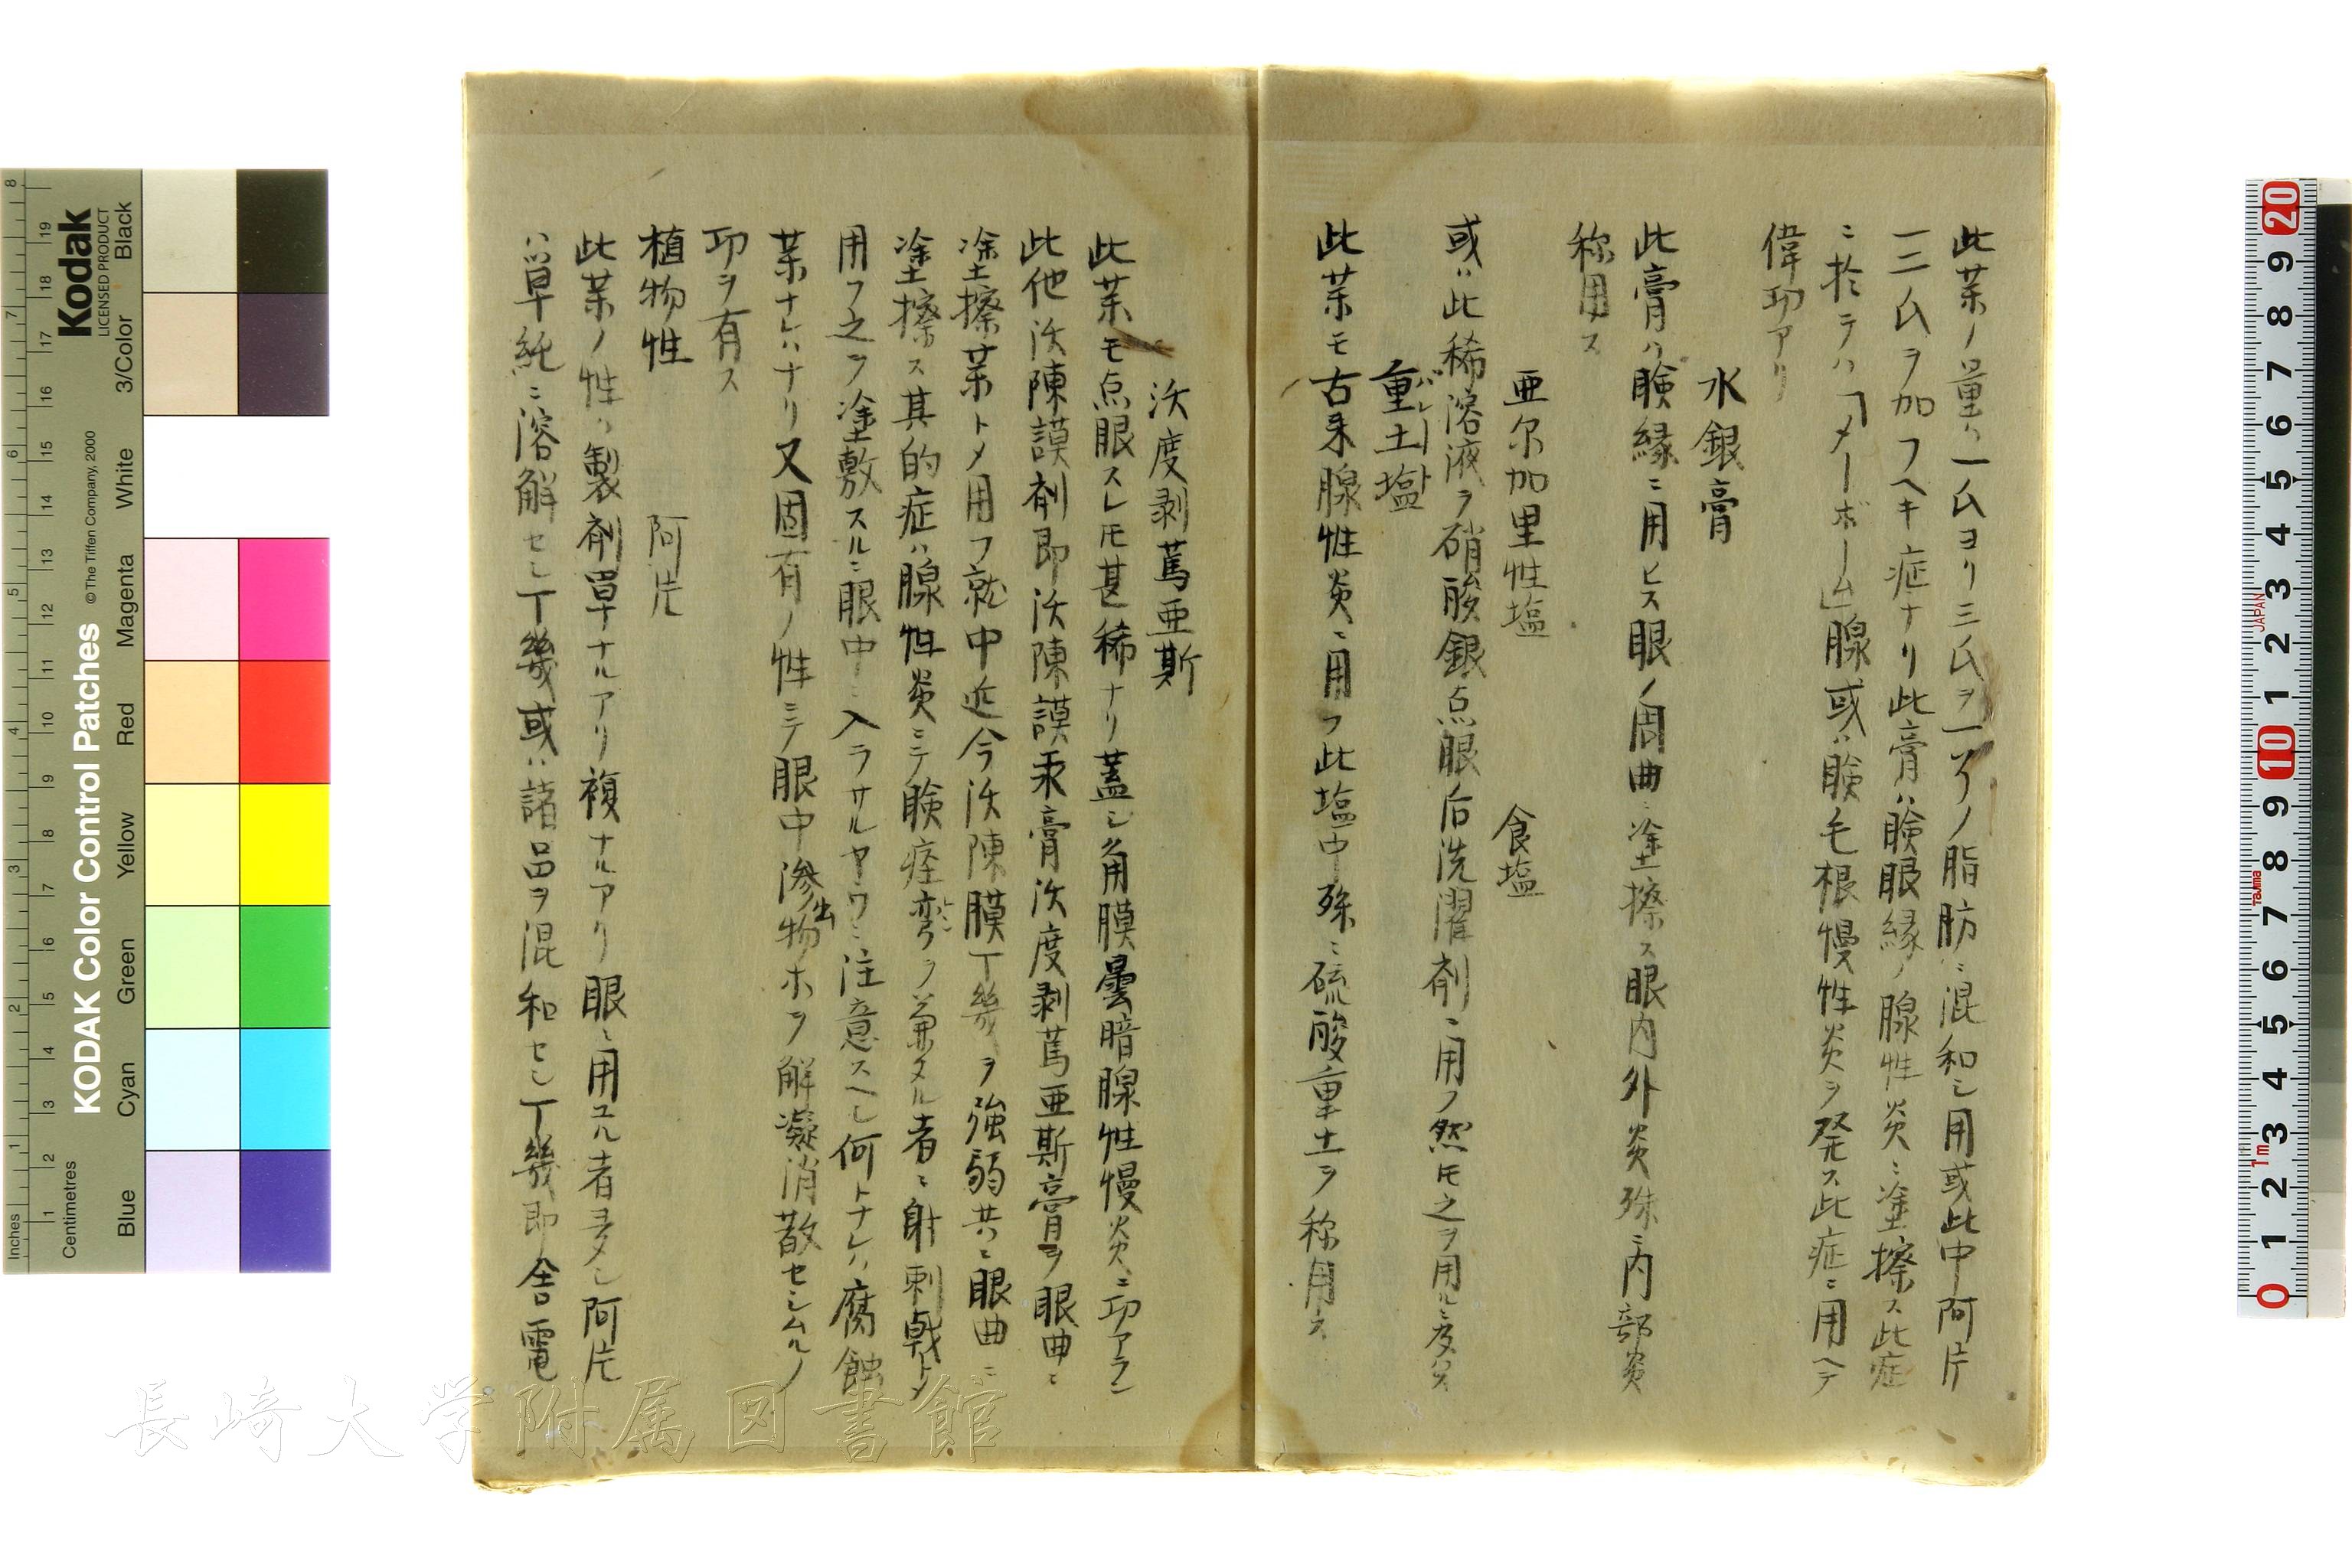 此薬ノ量ハ一氏ヨリ三氏ヲ一ノ脂肪ニ混和シ用或此中阿片
一二氏ヲ加フヘキ症ナリ此膏ハ瞼眼縁ノ腺性炎ニ塗擦ス此症
ニ於テハ「メーボーム」腺或ハ瞼毛根慢性炎ヲ発ス此症ニ用ヘテ
偉功アリ
水銀膏
此膏ハ瞼縁ニ用ヒス眼ノ周曲ニ塗擦ス眼内外炎殊ニ内部炎
称用ス
亜尔加里性塩 食塩
或ハ此稀溶液ヲ硝酸銀点眼后洗濯剤ニ用フ然モ之ヲ用ルニ及ハス
重土塩
バレート
此薬モ古来腺性炎ニ用フ此塩中殊ニ硫酸重土ヲ称用ス
沃度剥篤亜斯
此薬モ点眼スレモ甚稀ナリ蓋シ角膜曇暗腺性慢炎ニ功アラン
此他沃陳謨剤即沃陳謨汞膏沃度剥篤亜斯膏ヲ眼曲ニ
塗擦薬トメ用フ就中近今沃陳膜丁幾ヲ強弱共ニ眼曲ニ
塗擦ス其的症ハ腺性炎ニテ瞼痙攣ヲ兼タル者ニ射刺戟トメ
用フ之ヲ塗敷スルニ眼中ニ入ラサルヤウニ注意スヘシ何トナレハ腐蝕
薬ナレハナリ又固有ノ性ニテ眼中滲出物ホヲ解凝消散セシムルノ
功ヲ有ス
植物性 阿片
此薬ノ性ハ製剤単ナルアリ複ナルアリ眼ニ用ユル者多シ阿片
ハ単純ニ溶解セシ丁幾或ハ諸品ヲ混和セシ丁幾即舎電
長崎大学附属図書館
Kodak
LICENSED PRODUCT
KODAK Color Control Patches
© The Tiffen Company, 2000
Black
3/Color
White
Magenta
Red
Yellow
Green
Cyan
Blue
Inches
Centimetres
JAPAN
Tajima
1m